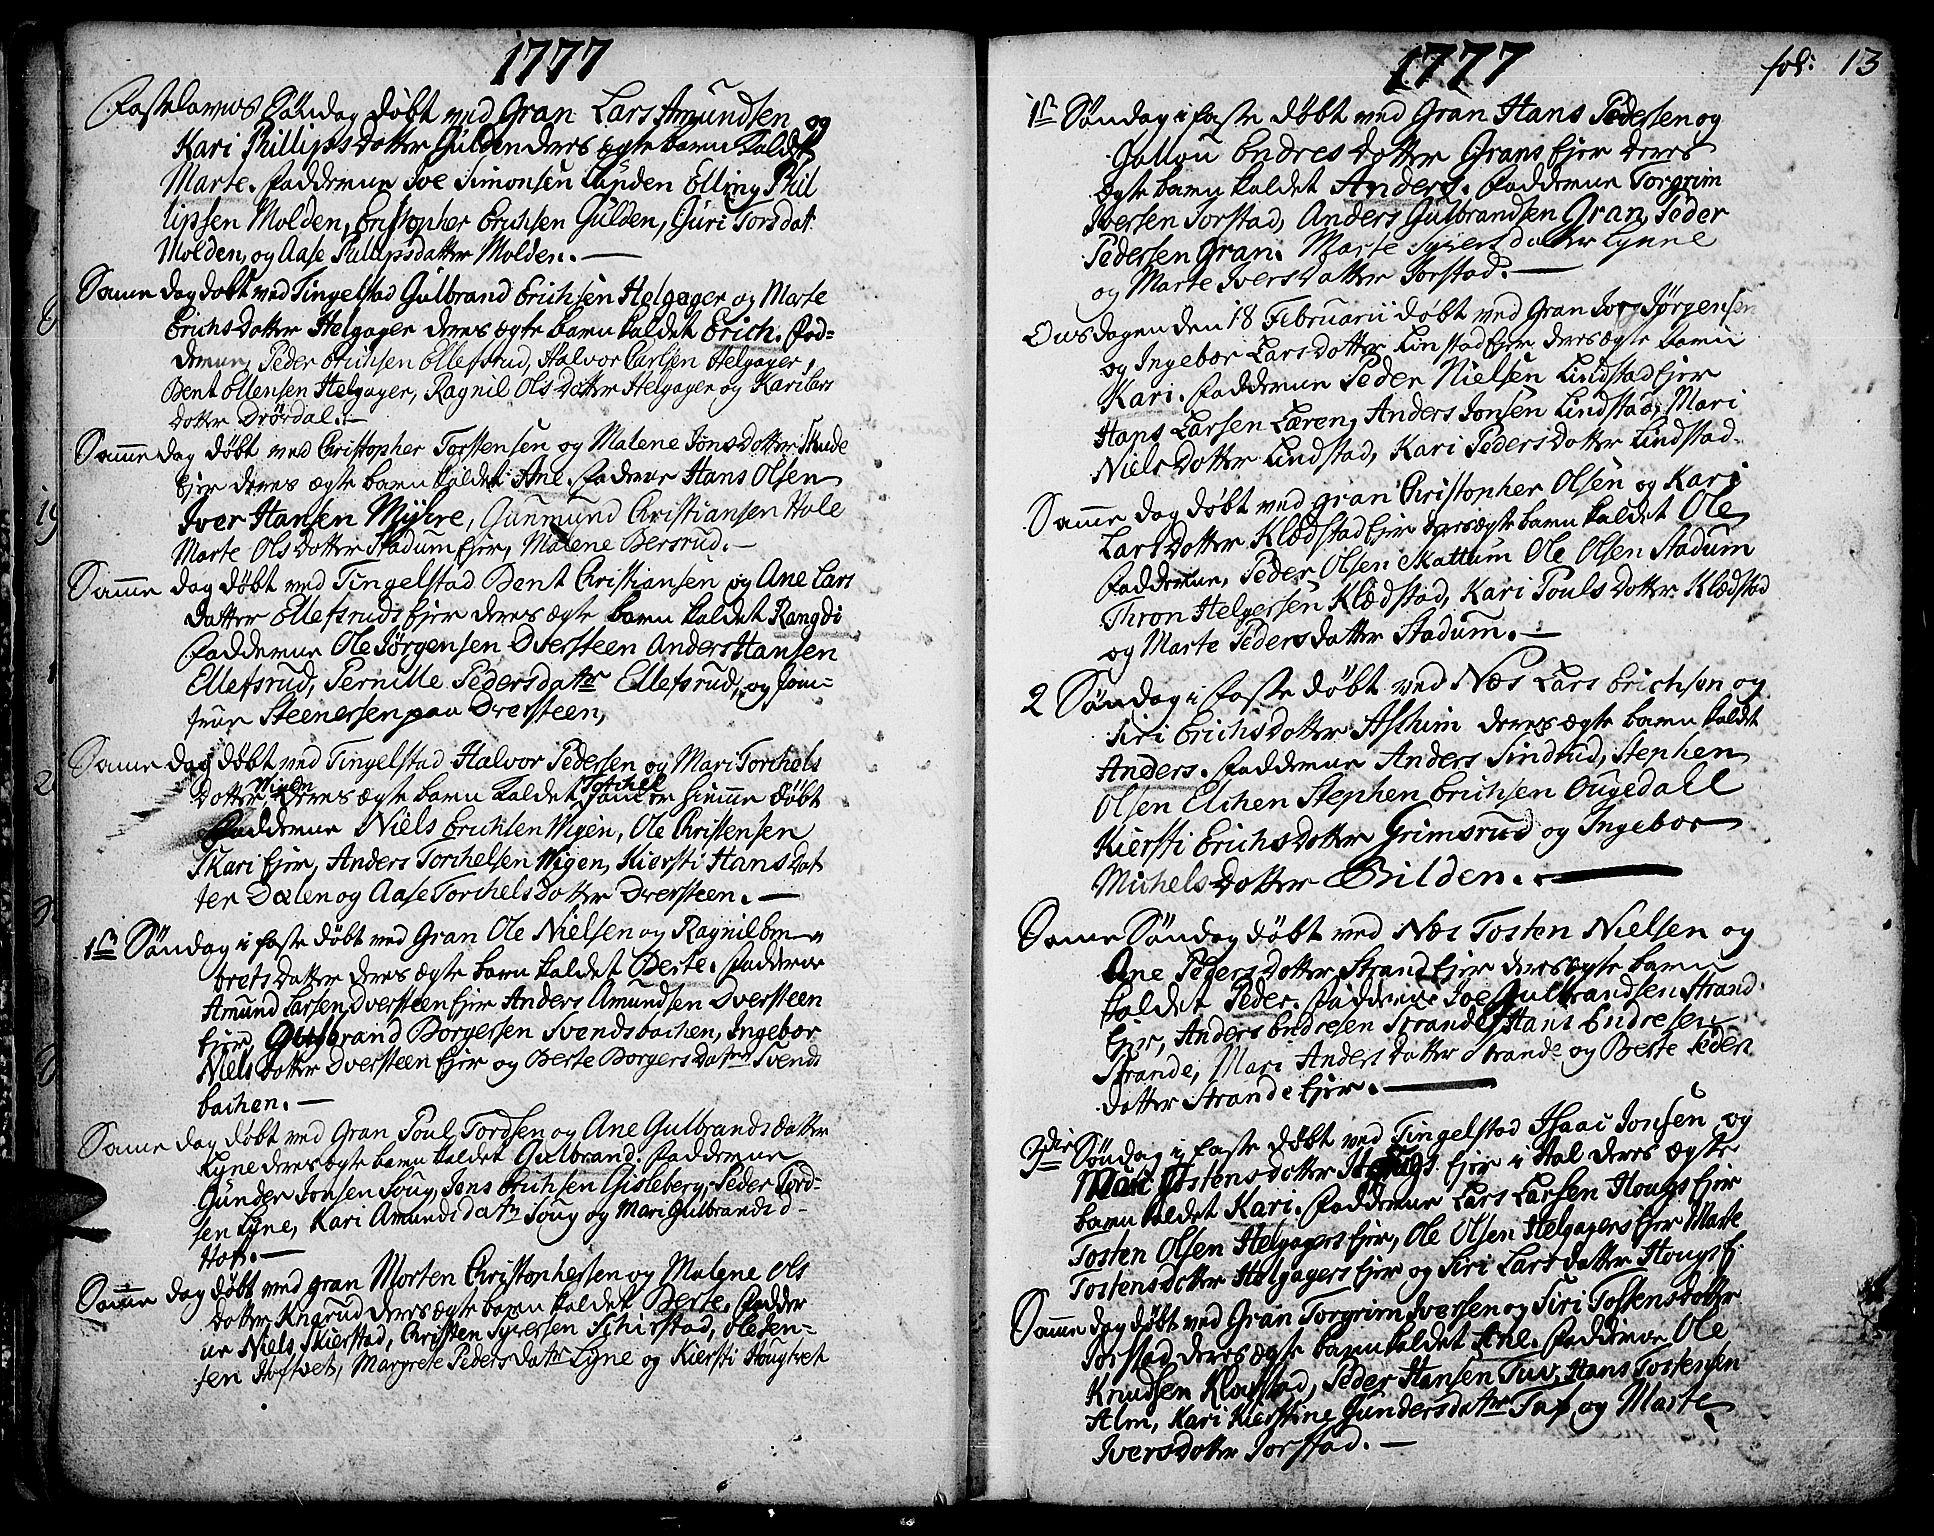 1777
Fastelavns Söndag döbt ved Gran Lars Amundsen og
Kari Phillips dotter Gulden deres ægte barn kaldet
Marte. Fadderne Joe Simonsen Lynden Elling Phil
lipsen Molden, Christopher Erichsen Gulden, Guri Torsdat.
Molden, og Aase Phillipsdatter Molden.—
Same dag døbt ved Tingelstad Gulbrand Erichsen Helgager og Marte
Erichs dotter Helgager deres ægte barn kaldet Erich. Fad-
derne Peder Erichsen Ellefsrud, Halvor Carlsen Helgager,
Bent Ellensen Helgager, Ragnil Ols dotter Helgager og Kari Lars
dotter Drövdal.—
Samme dag døbt ved Christopher Torstensen og Malene Jons dotter Skude
Ejer deres ægte barn kaldet Ane. Fadderne Hans Olsen
Iver Hansen Myhre, Gunmund Christiansen Hole
Marte Ols dotter Stadum Ejer, Malene Bersrud.—
Samme dag døbt ved Tingelstad Bent Christiansen og Ane Lars
datter Ellefsruds Ejer deres ægte barn kaldet Rangdi
Fadderne Ole Jørgensen Dversteen Anders Hansen
Ellefsrud, Pernille Pedersdattr Ellefsrud, og Jom-
frue Steenersen paa Dversteen,
Same dag døbt ved Tingelstad Halvor Pedersen og Mari Torchels
dotter Wigen deres ægte barn kaldet Torchel som er hiemme døbt
Fadderne Niels Erichsen Wigen, Ole Christensen
Skari Ejer, Anders Torchelsen Wigen, Kiersti Hans dat
ter Dælen og Aase Torchels dotter Dversteen.—
1ste Søndag i faste døbt ved Gran Ole Nielsen og Ragnil Em
brets datter deres ægte barn kaldet Berte. Fadderne
Amund Larsen Dversteen Ejer Anders Amundsen Dversteen
Ejer, Gulbrand Borgersen Svendsbachen, Ingebor
Niels dotter Dversteen Ejer og Berte Borgers dattr Svends
bachen.—
Same dag døbt ved Gran Poul Tordsen og Ane Gulbrands datter
Lyne deres ægte barn kaldet Gulbrand. Fadderne
Gunder Jonsen Soug, Jens Erichsen Gisleberg, Peder Tord-
sen Lyne, Kari Amunds datr Soug og Mari Gulbrands d-
Hof.—
Samme dag døbt ved Gran Morten Christophersen og Malene Ols
dotter Knarud deres ægte barn kaldet Berte. Fadder
ne Niels Skierstad, Christen Syversen Schirstad, Ole Sen-
sen Hoftvet, Margrete Peders datr Lyne og Kiersti Hougtvet
1777 fol: 13
1ste Søndag i faste døbt ved Gran Hans Pedersen og
Gollou Endres dotter Grans Ejer deres
ægte barn kaldet Anders. Fadderne Torgrim
Iversen Jorstad, Anders Gulbrandsen Gran, Peder
Pedersen Gran. Marte Syvers datter Lynne
og Marte Ivers datter Jorstad.—
Onsdagen den 18 Februarii døbt ved Gran Jorg Jørgensen
og Ingebor Lars dotter Linstad Ejer deres ægte barn
Kari. Fadderne Peder Nielsen Lindstad Ejer
Hans Larsen Læren, Anders Jonsen Lindstad, Mari
Niels dotter Lindstad, Kari Peders dotter Lindstad.
Samme dag døbt ved Gran Christopher Olsen og Kari
Lars dotter Klæstad Ejer deres ægte barn kaldet Ole
Fadderne, Peder Olsen Skattum Ole Olsen Stadum
Thron Helgersen Klædstad, Kari Pouls dotter Klædstad
og Marte Peders datter Stadum.—
2 Søndag i faste døbt ved Næs Lars Erichsen og
Siri Erichs dotter Askim deres ægte barn kaldet
Anders. Fadderne Anders Sindrud, Stephen
Olsen Elchen Stephen Erichsen Ougedall
Kiersti Erichs dotter Grimsrud og Ingebor
Michels dotter Bilden.—
Same Søndag døbt ved Næs Tosten Nielsen og
Ane Peders dotter Strand Ejer deres ægte barn
kaldet Peder. Fadderne Joe Gulbrandsen Strand
Ejer, Anders Endresen Strande, Hans Endresen
Strande, Mari Anders dotter Strande og Berte Peders
dotter Strande Ejer.—
3die Søndag i faste døbt ved Tingelstad Isaac Jonsen og
Mari Tostens dotter Hougs Ejer i Hal deres ægte
barn kaldet Kari. Fadderne Lars Larsen Hougs Ejer
Tosten Olsen Helgagers Ejer, Ole Olsen Helgagers Ejer Marte
Tostens dotter Helgagers Ejer og Siri Lars datter Hougs Ej.
Samme dag døbt ved Gran Torgrim Iversen og Siri Tostens dotter
Jorstad deres ægte barn kaldet Ane. Fadderne Ole
Knudsen Klæstad, Peder Hansen Tuv, Hans Tostensen
Alm, Kari Kierstine Gunders dattr Tuf, og Marte
Ivers dotter Jorstad.—